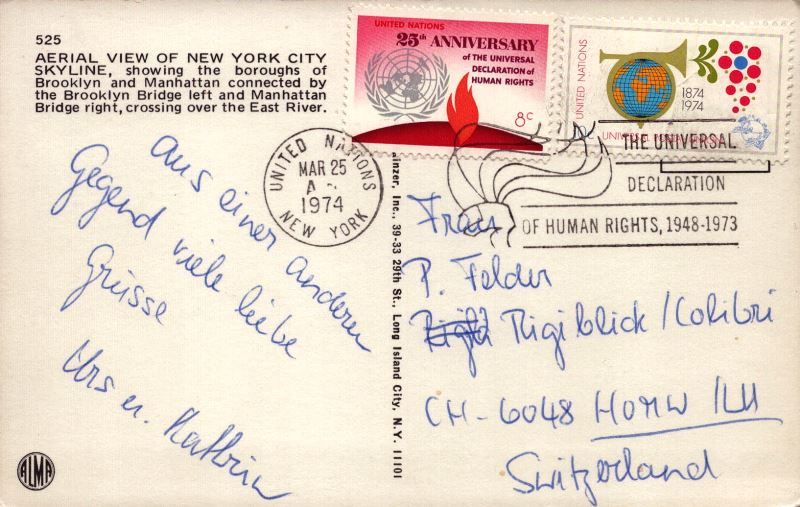 525
AERIAL VIEW OF NEW YORK CITY
SKYLINE, showing the boroughs of
Brooklyn and Manhattan connected by
the Brooklyn Bridge left and Manhattan
Bridge right, crossing over the East River.
UNITED NATIONS
25th ANNIVERSARY
of the UNIVERSAL
DECLARATION of
HUMAN RIGHTS
8c
UNITED NATIONS
1874
1974
UNIVERSAL
UNITED NATIONS
MAR 25
1974
NEW YORK
THE UNIVERSAL
DECLARATION
OF HUMAN RIGHTS, 1948-1973
Aus einer anderen
Gegend viele liebe
Grüsse
Urs u. Kathrin
inzer, Inc., 39-33 29th St., Long Island City, N.Y. 11101
Frau
P. Felder
Rigiblick / Colibri
CH-6048 HORW / LU
Switzerland
ALMA